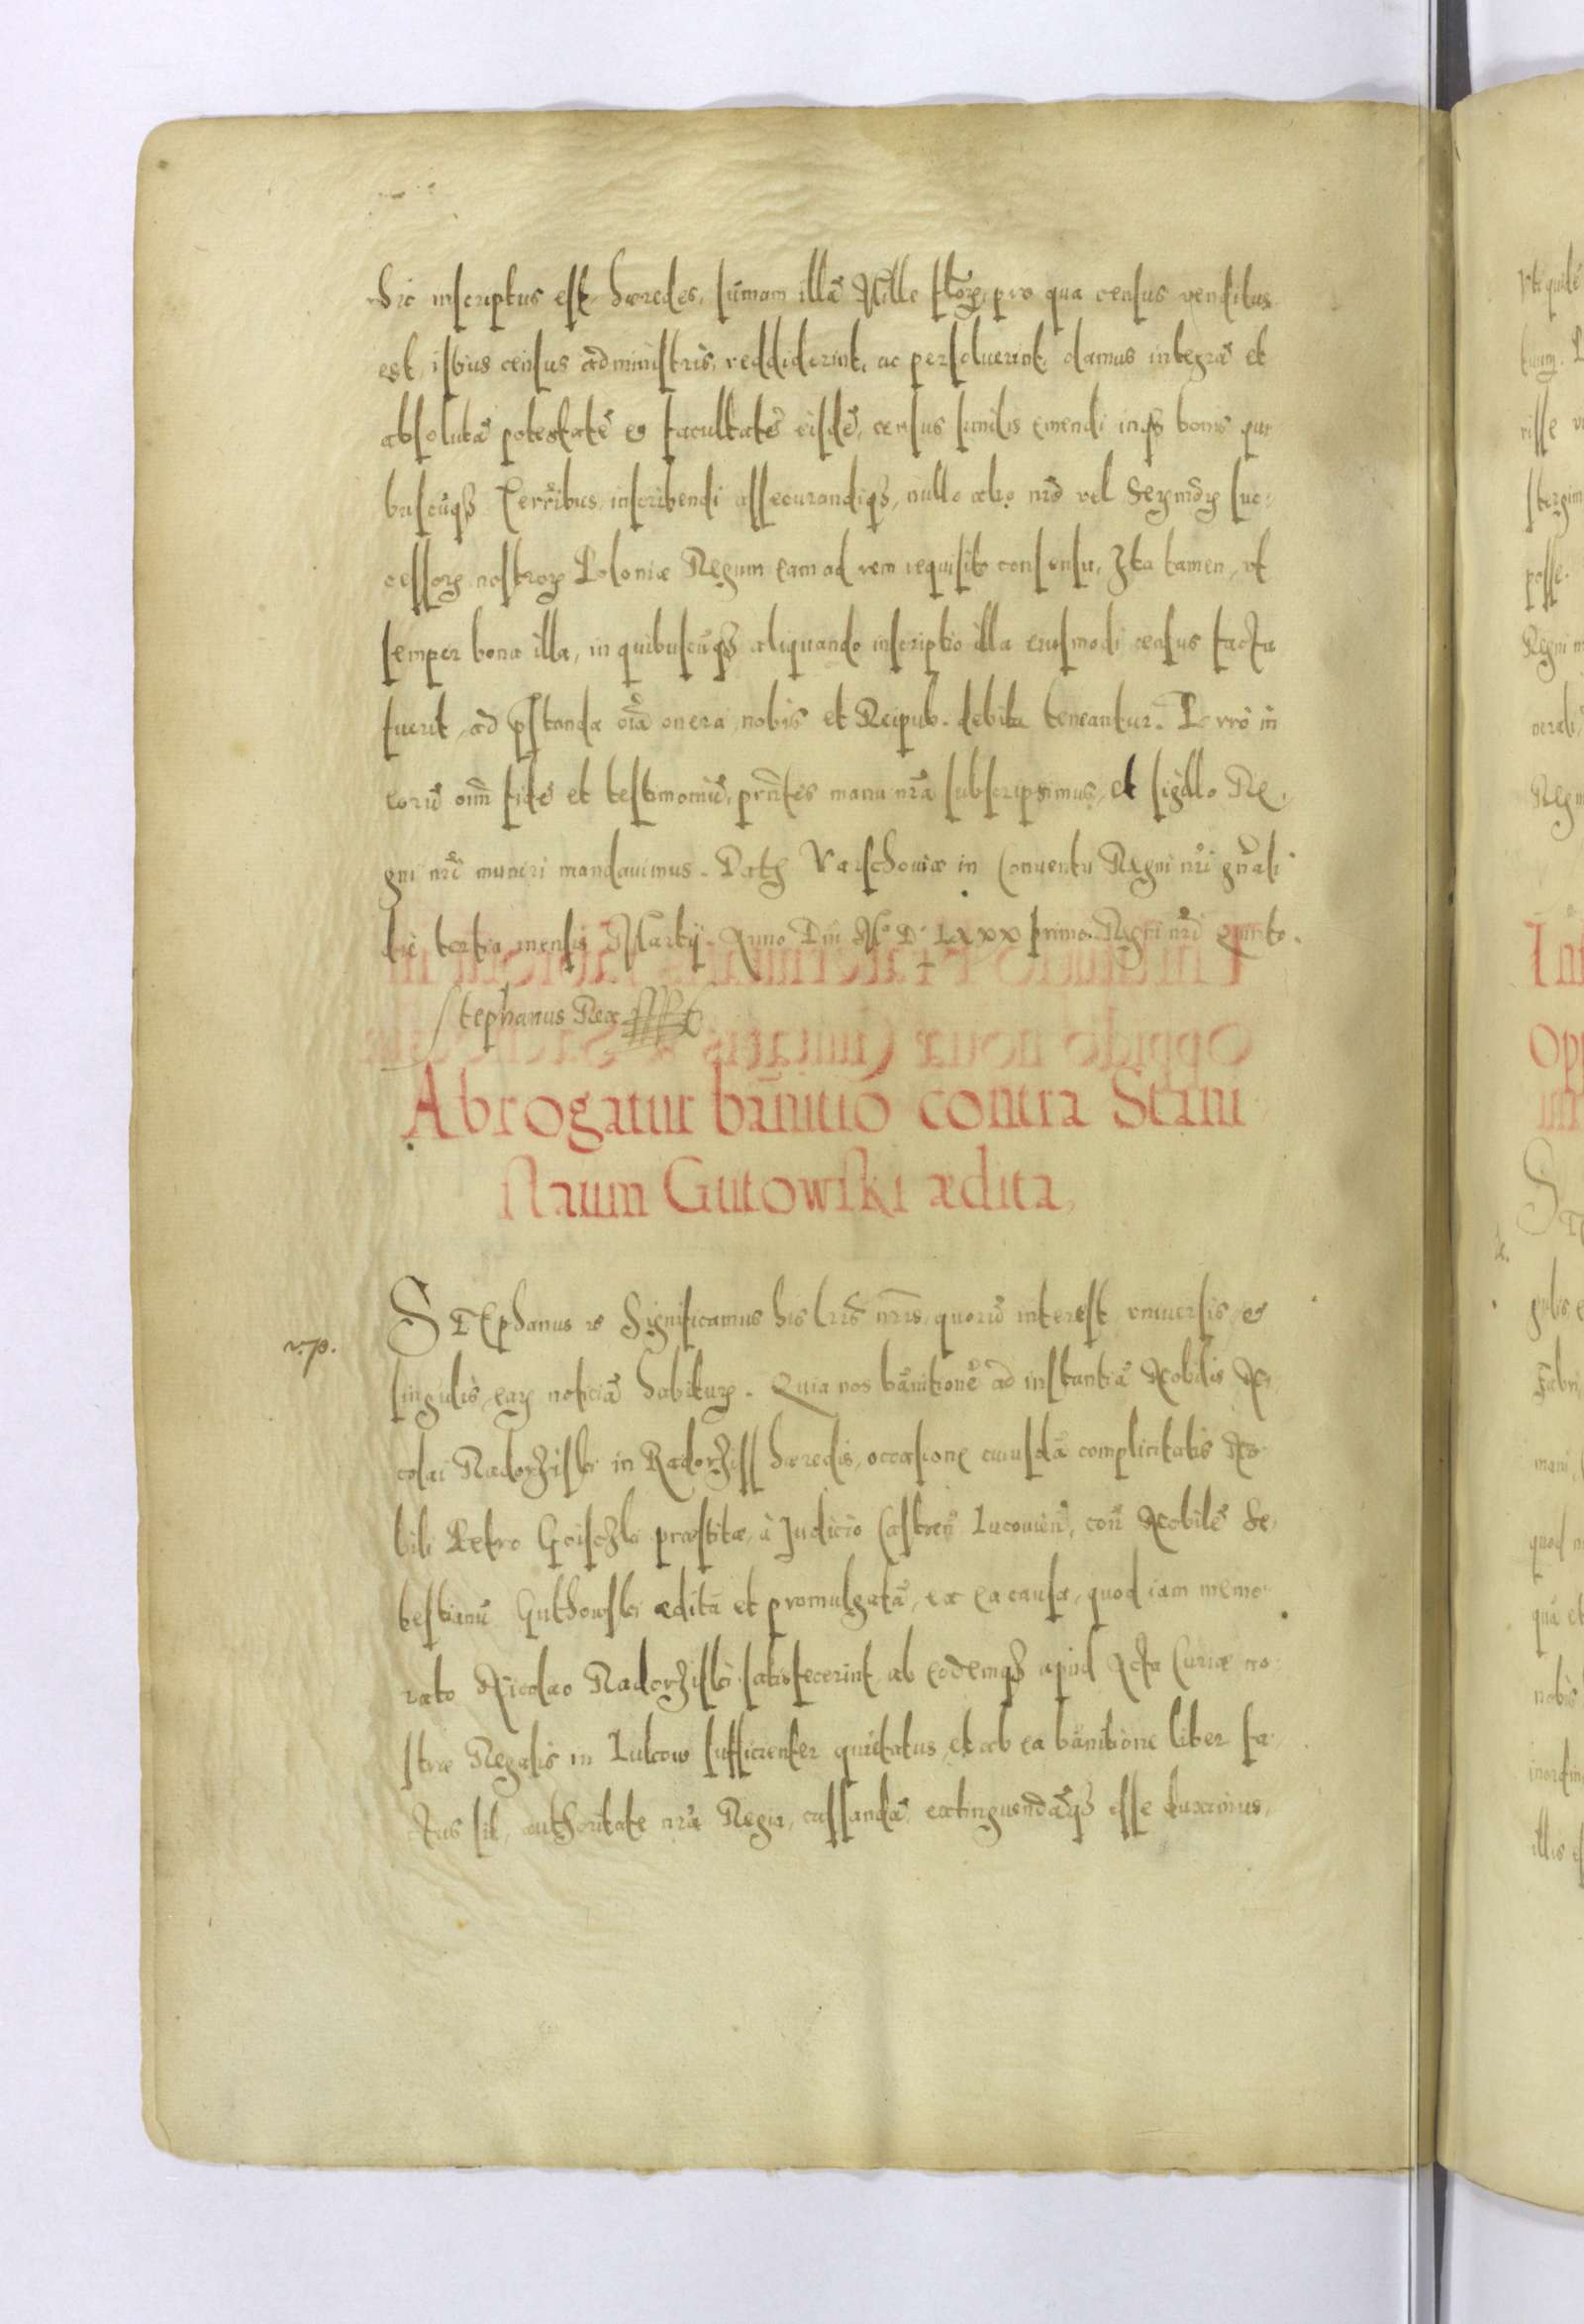 hic inscriptus est hæredes, sum̄am illā Mille floꝝ, pro qua census venditus
est, istius census administris, reddiderint, ac persoluerint, damus integrā et
absolutā potestatē et facultatē eisdē, census similis emendi inqꝫ bonis qui
buscūqꝫ terrībus, inscribendi assecurandiqꝫ, nullo alio nrō vel Serᵐoꝝ suc
cessorꝝ nostrorꝝ Poloniæ Regum eam ad rem requisito consensu, Ita tamen, vt
semper bona illa, in quibuscūqꝫ aliquando inscriptio illa eiusmodi census facta
fuerit, ad pstanda oīa onera, nobis et Reipub. debita teneantur. Porrò in
eorū oīm fidē et testimoniū, prn̄tes manu nrā subscripsimus, et sigillo Re
gni nrī muniri mandauimus. Datꝝ Varschouiæ in Conuentu Regni nrī gn̄ali
die tertia mensis Martij. Anno Dnī Mᵒ Dᵒ LXXX primo. Regni nrī quinto.
Stephanus Rex
Abrogatur ban̄itio contra Stani
slaum Gutowski ædita,
v. p.
STEphanus ꝛc Significamus his lrīs nrīs, quorū interest vniuersis et
singulis, eaꝝ noticiā habituꝝ. Quia nos ban̄itionē ad instantiā Nobilis Ni
colai Radorzisski in Radorziss hæredis, occasione cuiusdā complicitatis No
bili Petro Goisczki præstitæ, à Judicio Castren̄ Lucouien̄, con̄ Nobilē Se
bestianū Guthowski æditā et promulgatā, ex ea causa, quod iam memo
rato Nicolao Radorzisski satisfecerint ab eodemqꝫ apud Acta Curiæ no
stræ Regalis in Lukow sufficienter quietatus, et ab ea ban̄itione liber fa
ctus sit, authoritate nrā Regia, cassandā, extinguendāqꝫ esse duximus,